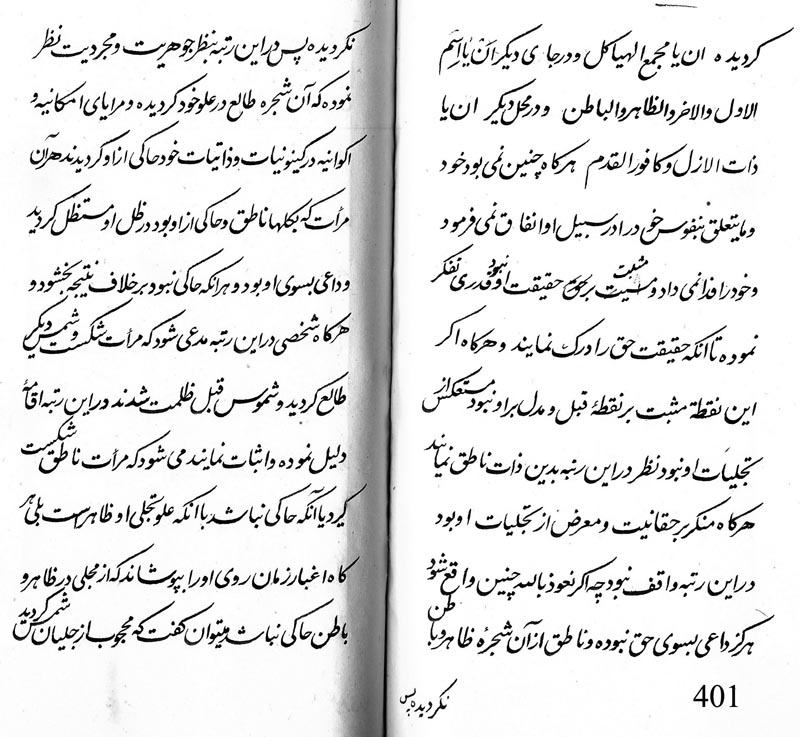 کردیده ان یا مجمع الهیاکل و در جای دیکر ان یا اسم
الاول والاخر والظاهر والباطن و در محل دیکر ان یا
ذات الازل و کافور القدم هرکاه چنین نمی بود خود
و ما یتعلق بنفوس خود را در سبیل او انفاق نمی فرمود
و خود را فدا نمی داد و مثبت بر حقیقت او نبود قدری تفکر
نموده تا انکه حقیقت حق را درک نمایند و هرکاه اکر
این نقطهٔ مثبت بر نقطهٔ قبل و مدل بر او نبود مستعکس از
تجلیات او نبود نظر در این رتبه بدین ذات ناطق نمایند
هرکاه منکر بر حقانیت و معرض از تجلیات او بود
در این رتبه واقف نبود چه اکر نعوذ بالله چنین واقع شود
هرکز داعی بسوی حق نبوده و ناطق از آن شجرهٔ ظاهر و باطن
نکردیده پس
401
نکردیده پس در این رتبه بنظر جوهریت و مجردیت نظر
نموده که آن شجره طالع در علو خود کردیده و مرایای امکانیه و
اکوانیه در کینونیات و ذاتیات خود حاکی از او کردیدند هر آن
مرأت که بکلها ناطق و حاکی از او بود در ظل او مستظل کردید
و داعی بسوی او بود و هر انکه حاکی نبود بر خلاف نتیجه بخشود و
هرکاه شخصی در این رتبه مدعی شود که مرأت شکست و شمس دیکری
طالع کردید و شموس قبل ظلمت شدند در این رتبه اقامهٔ
دلیل نموده و اثبات نمایند می شود که مرأت ناطق شکست
کیرد یا آنکه حاکی نباشد با انکه علو تجلی او ظاهر است بلی هر
کاه اغبار زمان روی او را بپوشاند که از مجلی در ظاهر و
باطن حاکی نباشد میتوان کفت که محجوب از جلیان شمس کردید